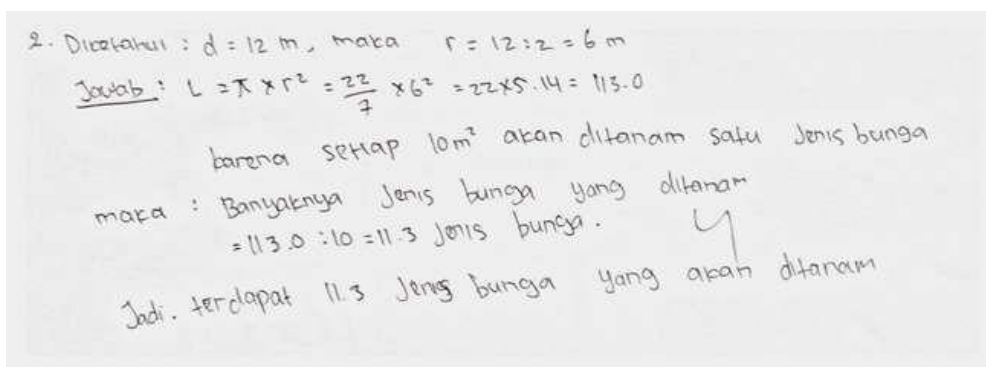 2. Diketahui : d = 12 m, maka r = 12 : 2 = 6 m
Jawab : L = π × r² = 22/7 × 6² = 22 × 5.14 = 113.0
karena setiap 10 m² akan ditanam satu jenis bunga
maka : Banyaknya jenis bunga yang ditanam
= 113.0 : 10 = 11.3 jenis bunga.
4
Jadi. terdapat 11.3 jenis bunga yang akan ditanam